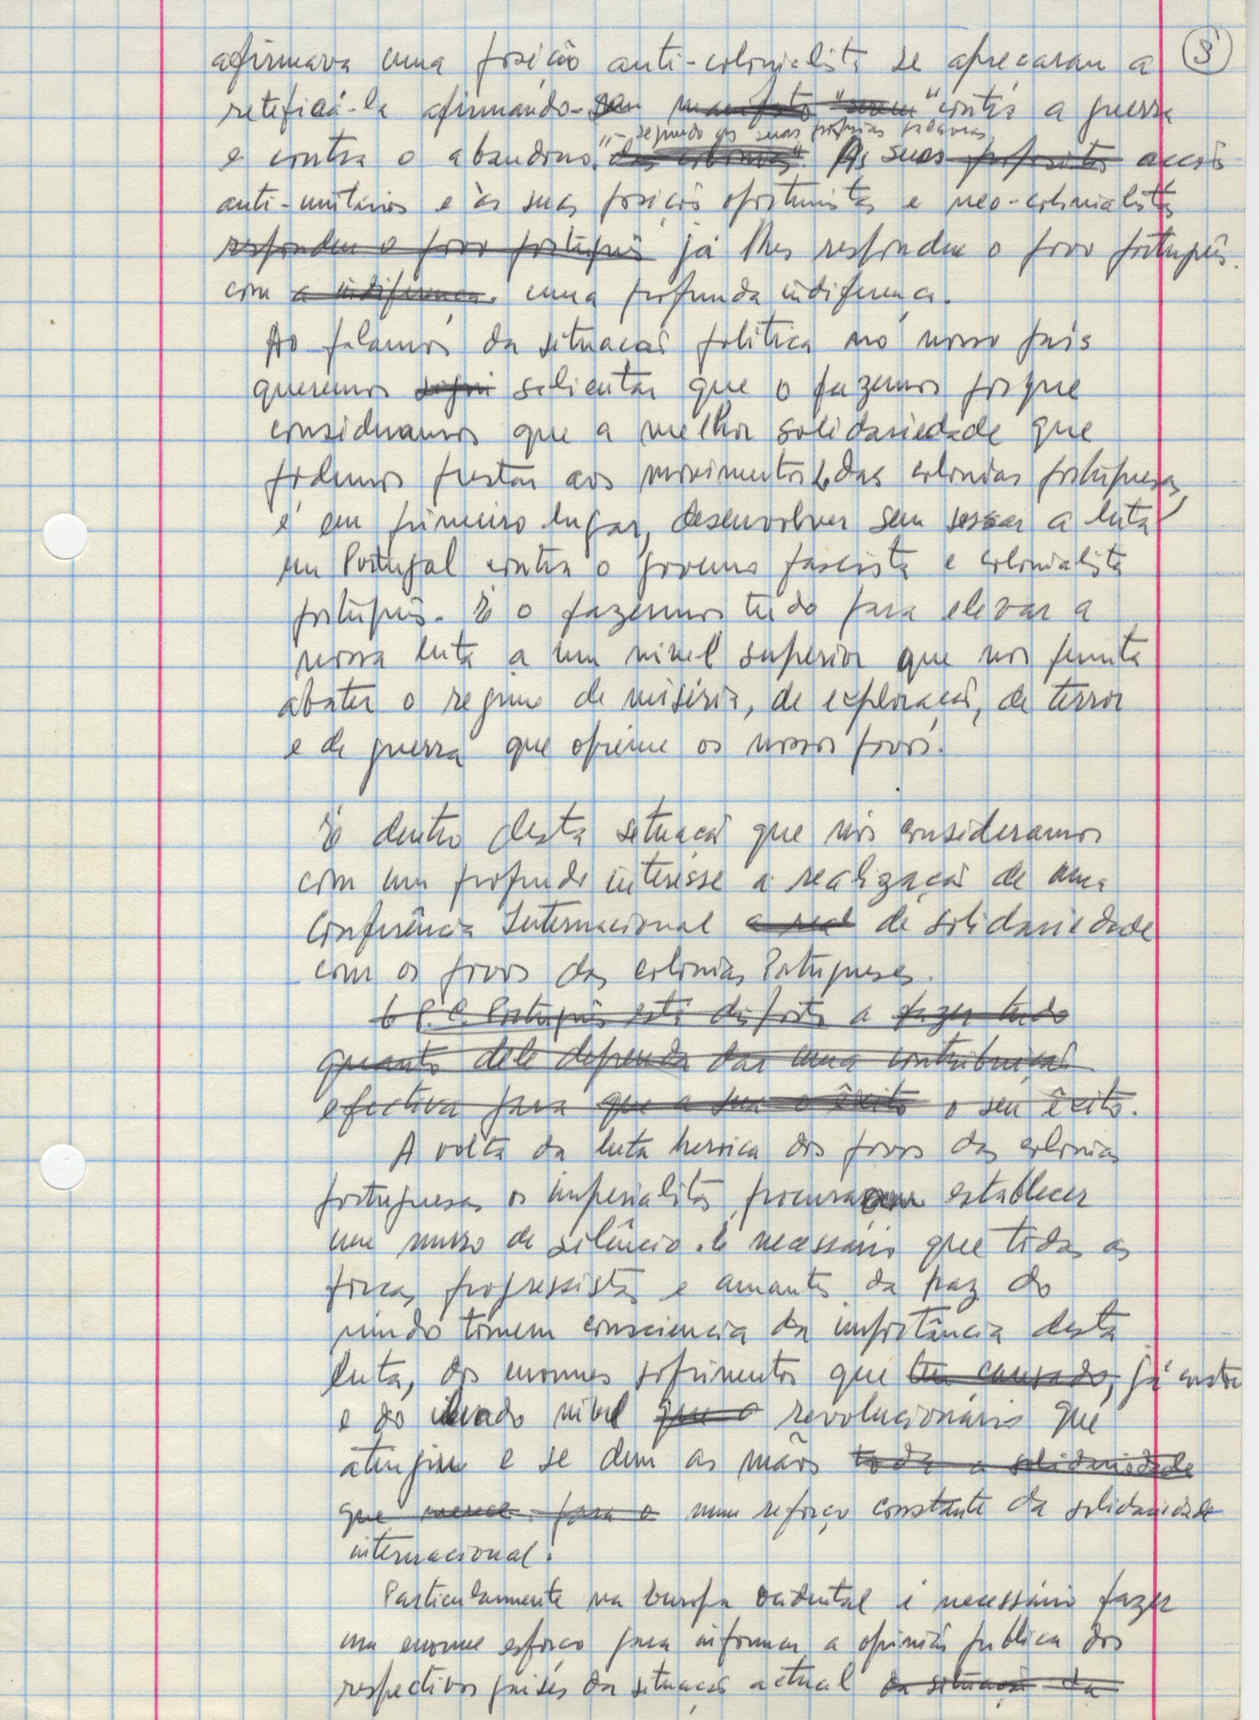 3
afirmava uma posição anti-colonialista se apreçaram a
retificá-la afirmando-se manifesto "sem" "contra a guerra
segundo as suas próprias palavras
e contra o abandono." das colonias". Às suas propositos acções
anti-unitárias e às suas posições oportunistas e neo-colonialistas
respondeu o povo português já lhes respondeu o povo português
com a indiferença. uma profunda indiferença.
Ao falamos da situação politica no nosso país
queremos salientar que o fazemos porque
consideramos que a melhor solidariedade que
podemos prestar aos movimentos das colonias portuguesas,
é em primeiro lugar, desenvolver sem sessar a luta
em Portugal contra o governo fascista e colonialista
português. É o fazermos tudo para elevar a
nossa luta a um nivel superior que nos permita
abater o regime de miséria, de exploração, de terror
e de guerra que oprime os nossos povos.
É dentro desta situação que nós consideramos
com um profundo interêsse a realização de uma
Conferência Internacional a real de solidariedade
com os povos das colonias Portuguesas.
O P.C. Português está disposto a fazer tudo
quanto dele dependa dar uma contribuição
efectiva para que a sua o êxito o seu êxito.
A volta da luta heroica dos povos das colonias
portuguesas os imperialistas procuraram establecer
um muro de silêncio. É necessário que todas as
forças progressistas e amantes da paz do
mundo tomem consciencia da importância desta
luta, dos enormes sofrimentos que tem causado, já custou
e do elevado nivel que o revolucionário que
atingiu e se dem as mãos toda a solidariedade
que merece para o num reforço constante da solidariedade
internacional.
Particularmente na Europa ocidental é necessário fazer
um enorme esforço para informar a opinião publica dos
respectivos paises da situação actual da situação da